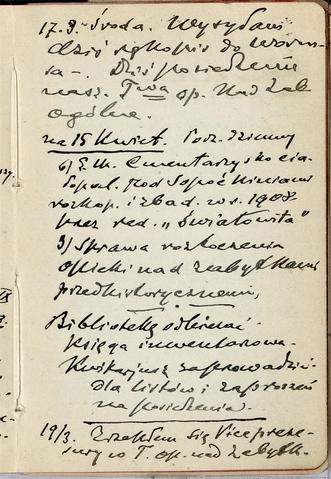 17.3. Środa. Wysyłam
dziś rękopis do Warsza-
wa-. Dziś posiedzenie
nasz. Twa op. nad zab.
ogólne.
na 15 Kwiet. Porz. Dzienny
Cmentarzysko ciało-
palne pod Sopoćkiniami
rozkop. i zbad. w r. 1908
przez red. „Światowita"
3) Sprawa roztoczenia
opieki nad zabytkami
przedhistorycznemi,
Bibliotekę odbierać.
Księga inwentarzowa.
Kwitarjusz zaprowadzić
dla listów i zaproszeń
na posiedzenia.
19/3. Zrzekłem się Viceprezе-
sury w T. op. nad zabytk.